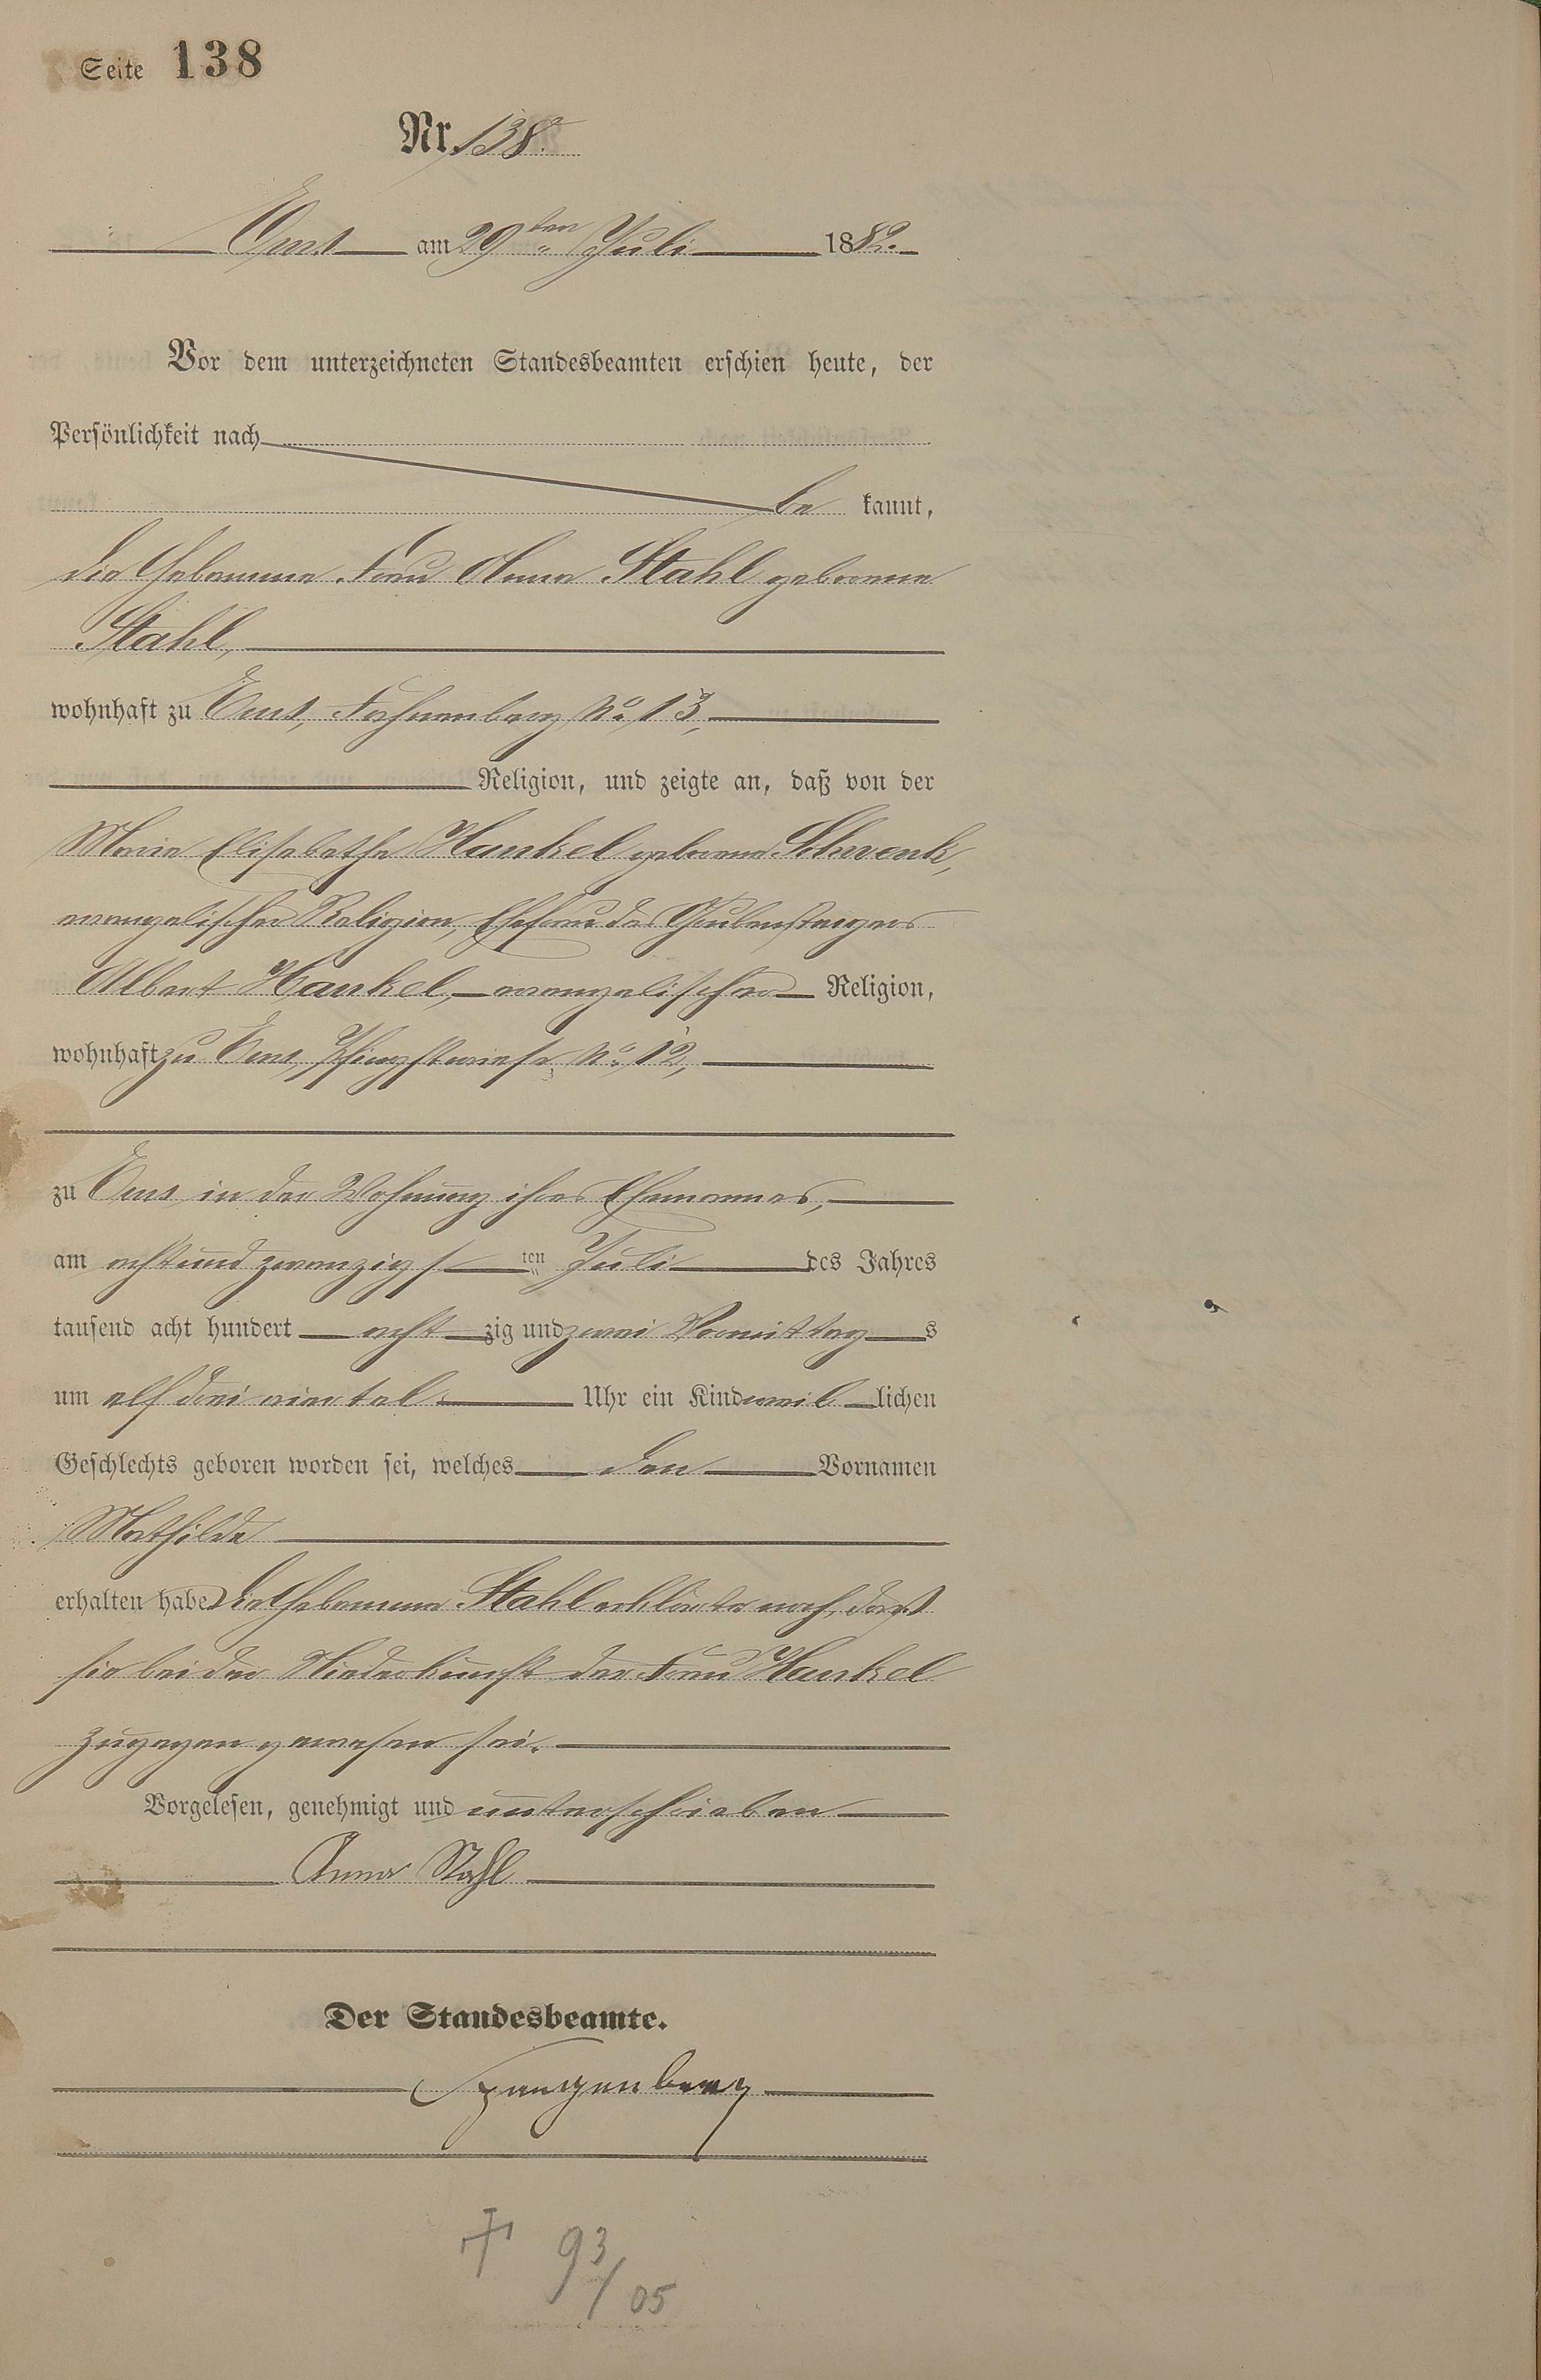 Seite 138
Nr. 138.
Ems am 29ten Juli 1882.
Vor dem unterzeichneten Standesbeamten erschien heute, der
Persönlichkeit nach
be kannt,
die Hebamme Frau Anna Stahl geborene
Stahl,
wohnhaft zu Ems, No. 13,
Religion, und zeigte an, daß von der
Marie Elisabethe Hankel geborene Schwenk,
evangelischer Religion, Ehefrau des Grubensteigers
Albert Hankel, evangelischer Religion,
wohnhaft zu Ems, Pfingstwiese No. 12,
zu Ems in der Wohnung ihres Ehemannes,
am achtundzwanzigsten Juli des Jahres
tausend acht hundert acht zig und zwei Vormittags
um elf drei viertel Uhr ein Kind weiblichen
Geschlechts geboren worden sei, welches den Vornamen
Mathilde
erhalten habe. Die Hebamme Stahl erklärte noch, daß
sie bei der Niederkunft der Frau Hankel
zugegen gewesen sei.
Vorgelesen, genehmigt und unterschrieben
Anna Stahl
Der Standesbeamte.
Spangenberg
† 93/05